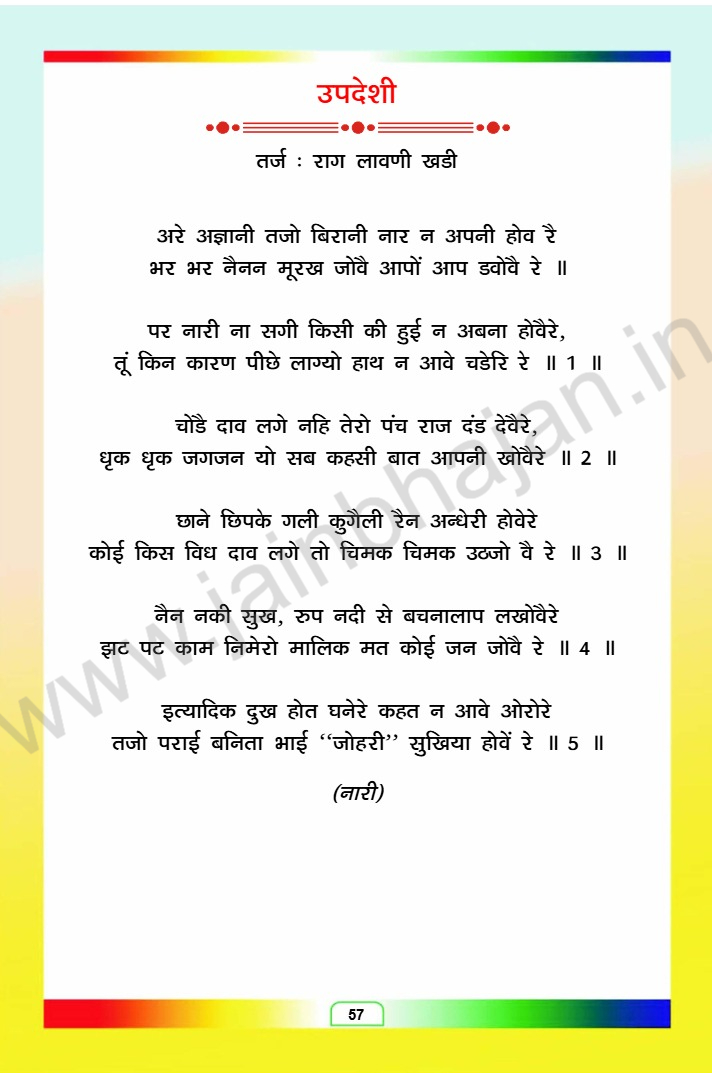 उपदेशी
तर्ज : राग लावणी खडी
अरे अज्ञानी तजो बिरानी नार न अपनी होव रै
भर भर नैनन मूरख जोंवै आपों आप डवोंवै रे ॥
पर नारी ना सगी किसी की हुई न अबना होंवैरे,
तूं किन कारण पीछे लाग्यो हाथ न आवे चडेरि रे ॥ 1 ॥
चोंडै दाव लगे नहि तेरो पंच राज दंड देवैरे,
धृक धृक जगजन यो सब कहसी बात आपनी खोंवैरे ॥ 2 ॥
छाने छिपके गली कुगैली रैन अन्धेरी होवेरे
कोई किस विध दाव लगे तो चिमक चिमक उठजो वै रे ॥ 3 ॥
नैन नकी सुख, रुप नदी से बचनालाप लखोंवैरे
झट पट काम निमेरो मालिक मत कोई जन जोंवै रे ॥ 4 ॥
इत्यादिक दुख होत घनेरे कहत न आवे ओरोरे
तजो पराई बनिता भाई ‘‘जोहरी’’ सुखिया होवें रे ॥ 5 ॥
(नारी)
www.jainbhajan.in
57